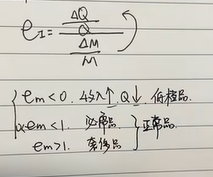 e_I = \frac{\frac{ΔQ}{Q}}{\frac{ΔM}{M}}
em<0. 收入↑ Q↓. 低档品.
0<em<1. 必需品
em>1. 奢侈品 } 正常品.